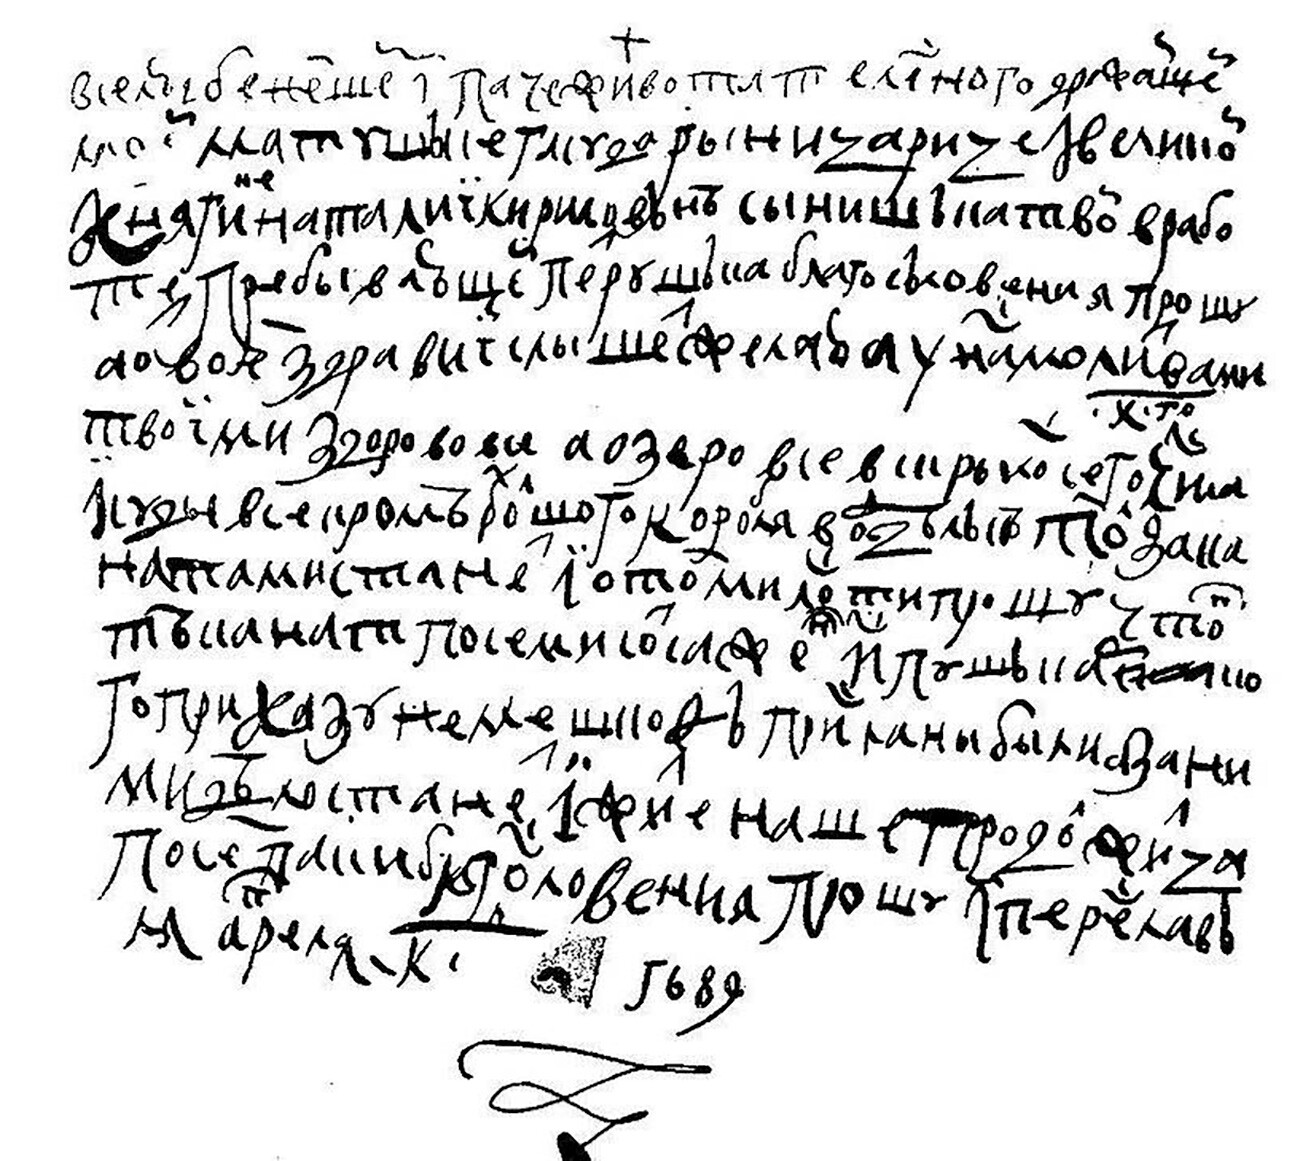 +
вселюбезнейшей i паче живота телесного дражайшей
моеi матушкъе гасударыни царице i великой
княгине наталиi кириловънъ сынишька твой в рабо
те пребывающей петрушька благословения прошу
а о твое здравиi слышеть желаю а у нас молитвами
твоiми здорово все а озеро все вскрылось сего к го числа
i суды все кромъ большого корабля в отдълкъ токо за кана
натами станет i о том милости прошу чтоб
тъ канаты по семисот сажен iс пушька
го приказу не мешкоф присланы были а за ни
ми дъло станет i житие наше продолжица
посем паки благословения прошу iс переславъ
ля апреля к
1689